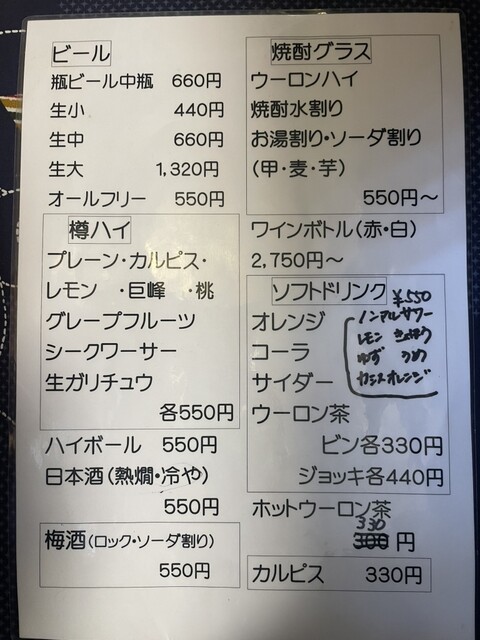 ビール
瓶ビール中瓶 660円
生小 440円
生中 660円
生大 1,320円
オールフリー 550円
樽ハイ
プレーン・カルピス・
レモン ・巨峰 ・桃
グレープフルーツ
シークワーサー
生ガリチュウ
各550円
ハイボール 550円
日本酒(熱燗・冷や)
550円
梅酒(ロック・ソーダ割り)
550円
焼酎グラス
ウーロンハイ
焼酎水割り
お湯割り・ソーダ割り
(甲・麦・芋)
550円～
ワインボトル(赤・白)
2,750円～
ソフトドリンク
¥550
ノンアルサワー
レモン きょほう
ゆず うめ
カシスオレンジ
オレンジ
コーラ
サイダー
ウーロン茶
ビン各330円
ジョッキ各440円
ホットウーロン茶
330
300円
カルピス 330円